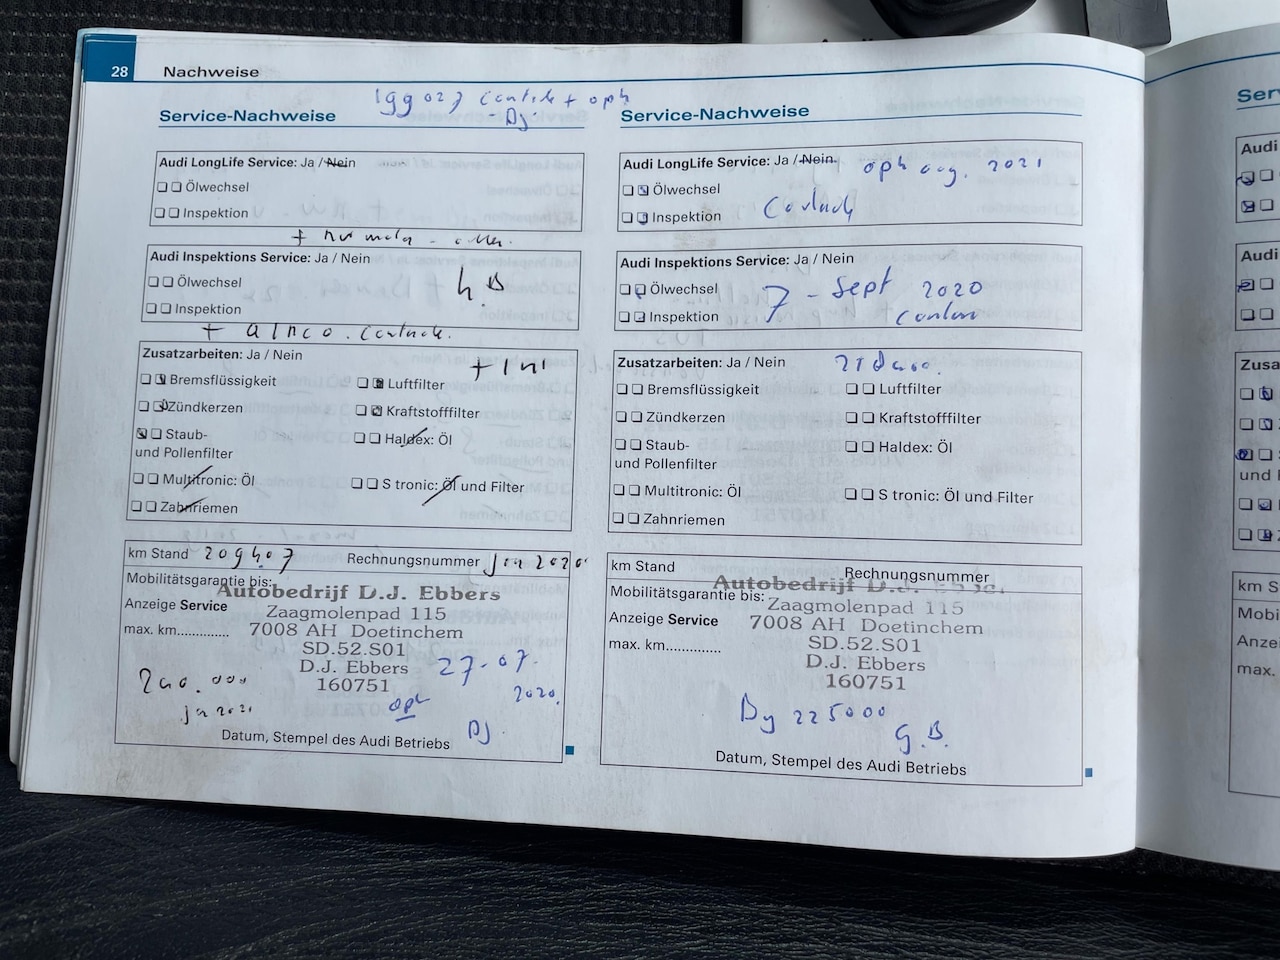 28 Nachweise
199027 controle + oph
DJ
Service-Nachweise
Audi LongLife Service: Ja / Nein
Ölwechsel
Inspektion
Audi Inspektions Service: Ja / Nein
Ölwechsel
Inspektion
+ Airco. Controle.
Zusatzarbeiten: Ja / Nein
Bremsflüssigkeit Luftfilter
Zündkerzen Kraftstofffilter
Staub-
und Pollenfilter Haldex: Öl
Multitronic: Öl S tronic: Öl und Filter
Zahnriemen
km Stand 209407 Rechnungsnummer jan 2020
Mobilitätsgarantie bis:
Autobedrijf D.J. Ebbers
Anzeige Service Zaagmolenpad 115
max. km............. 7008 AH Doetinchem
SD.52.S01
D.J. Ebbers 27-07-
160751 2020.
oph
DJ
Datum, Stempel des Audi Betriebs
Service-Nachweise
Audi LongLife Service: Ja / Nein oph aug. 2021
Ölwechsel
Inspektion
Audi Inspektions Service: Ja / Nein
Ölwechsel 7 - Sept 2020
Inspektion
Zusatzarbeiten: Ja / Nein
Bremsflüssigkeit Luftfilter
Zündkerzen Kraftstofffilter
Staub-
und Pollenfilter Haldex: Öl
Multitronic: Öl S tronic: Öl und Filter
Zahnriemen
km Stand Rechnungsnummer
Mobilitätsgarantie bis:
Autobedrijf D.J.
Anzeige Service Zaagmolenpad 115
max. km............. 7008 AH Doetinchem
SD.52.S01
D.J. Ebbers
160751
By 225000
G.B.
Datum, Stempel des Audi Betriebs
Ser
Audi
Audi
Zusa
und
km S
Mobi
Anze
max.